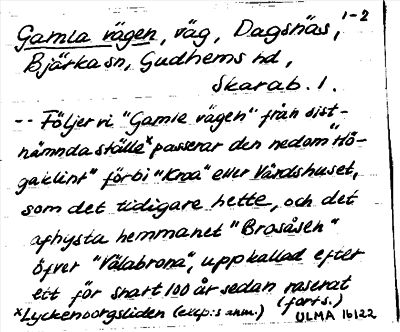 1-2
Gamla vägen, väg, Dagsnäs,
Bjärka sn, Gudhems hd,
Skarab. l.
-- Följer vi "Gamle vägen" från sist-
nämnda ställe* passerar den nedom "Hö-
gaklint" förbi "Kroa" eller Vårdshuset,
som det tidigare hette, och det
afhysta hemmanet "Brosåsen"
öfver "Välabrona", uppkallad efter
ett för snart 100 år sedan raserat
*Lyckenborgsliden (excp:s anm.) (forts.)
ULMA 16122